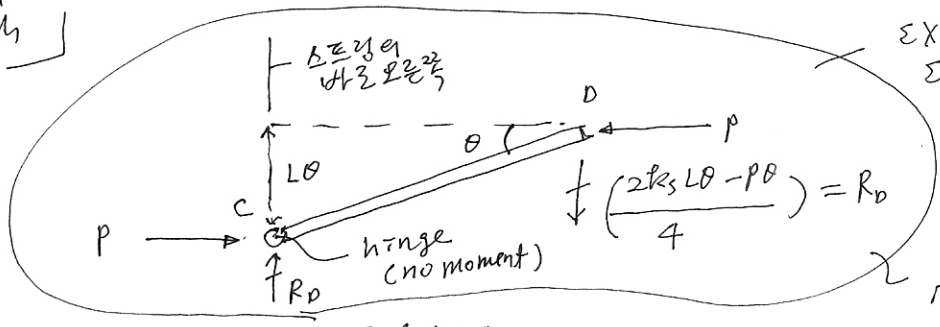 스프링의
바로 오른쪽
ΣX
Σ
D
θ
P
Lθ
(2ksLθ - Pθ / 4) = RD
C
P
hinge
(no moment)
RD